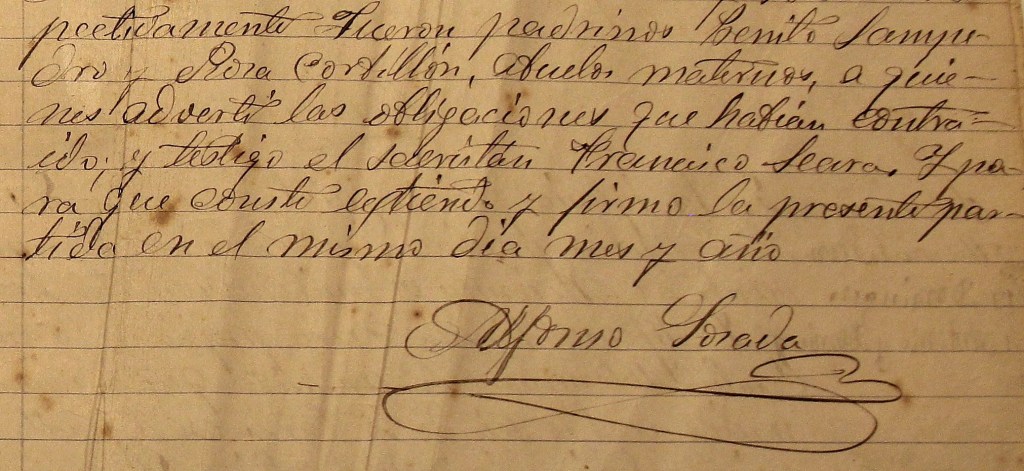 pectivamente Fueron padrinos Benito Sampe-
dro y Rosa Cortillón, abuelos maternos, a quie-
nes advertí las obligaciones que habían contra-
ido; y testigo el sacristán Francisco Seara. Y pa-
ra que conste extiendo y firmo la presente par-
tida en el mismo dia mes y año
Alfonso Losada